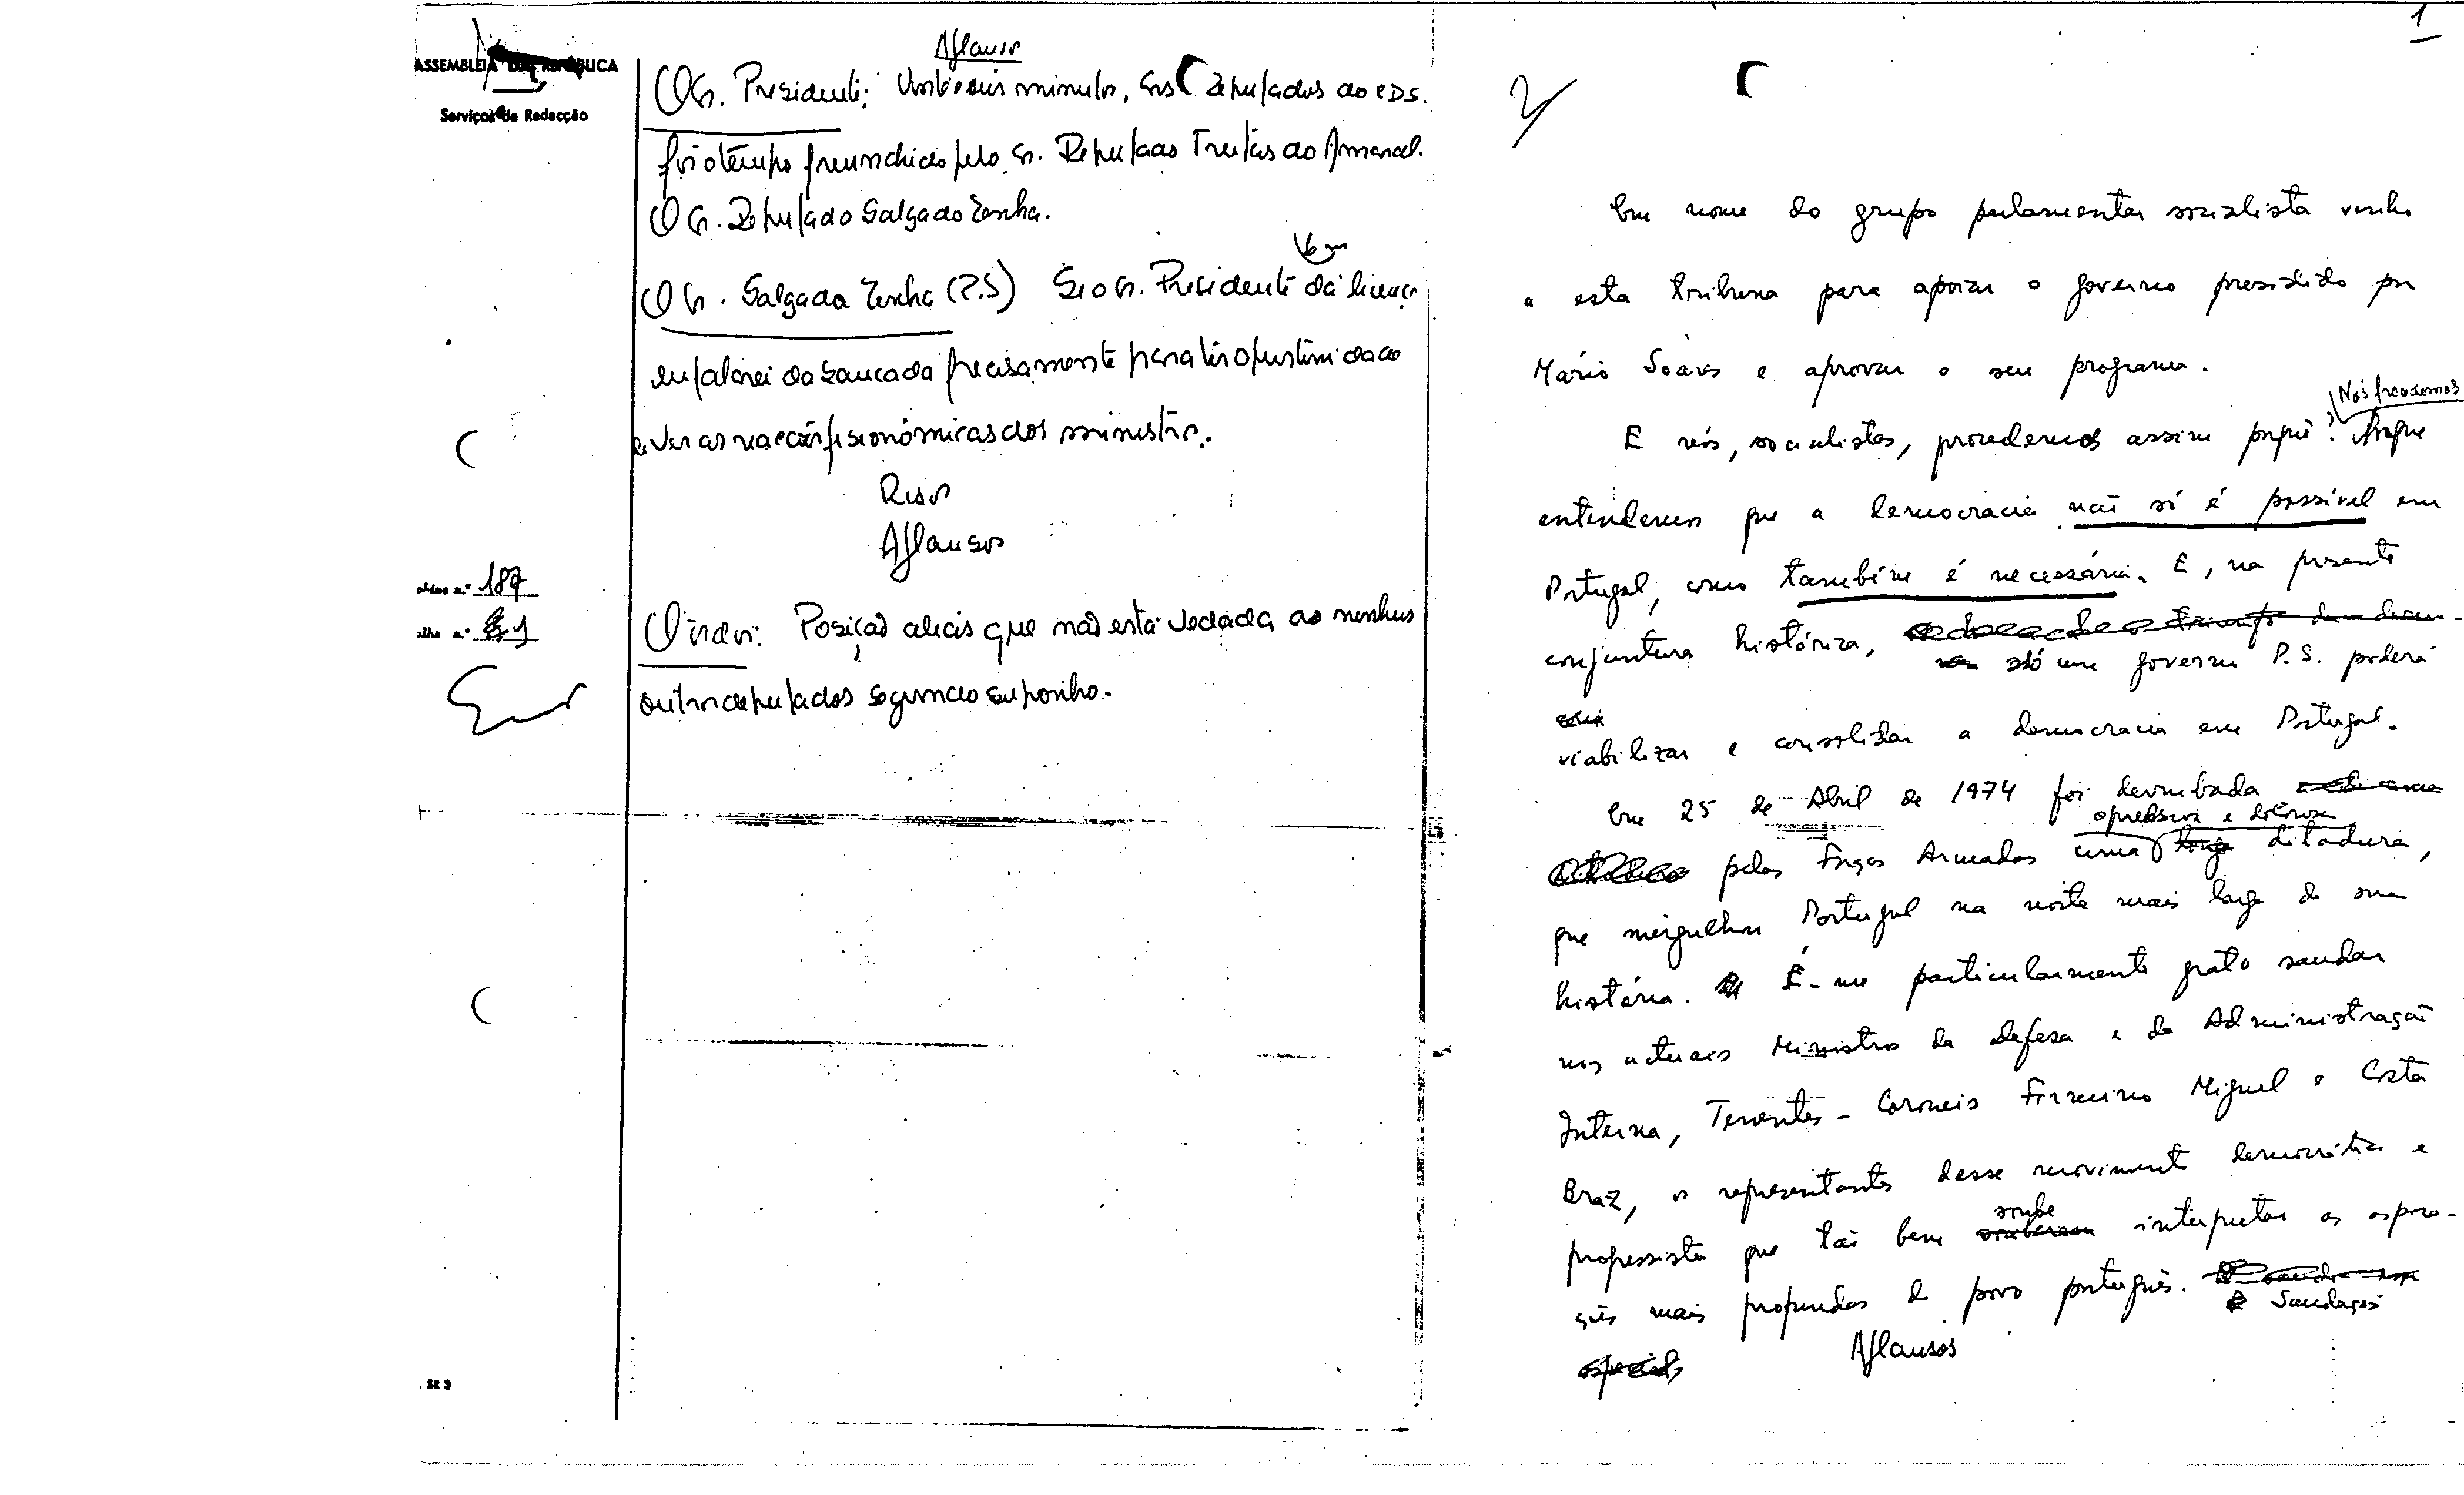 ASSEMBLEIA DA REPÚBLICA
Serviços de Redacção
Aplauso
O Sr. Presidente: Vinte e seis minutos, Srs. Deputados do CDS.
foi o tempo preenchido pelo Sr. Deputado Freitas do Amaral.
O Sr. Deputado Salgado Zenha.
Vem
O Sr. Salgado Zenha (P.S) Se o Sr. Presidente dá licença
eu falarei da bancada precisamente para ter oportunidade
de ver as reacções fisionómicas dos ministros.
Risos
Aplausos
nº 187
nº 1
O orador: Posição aliás que não está vedada a nenhuns
outros deputados segundo suponho.
SR 3
1
Em nome do grupo parlamentar socialista venho
a esta tribuna para apoiar o governo presidido por
Mário Soares e aprovar o seu programa.
Nós procedemos
E nós, socialistas, procedemos assim porquê? Porque
entendemos que a democracia não só é possível em
Portugal, como também é necessária. E, na presente
conjuntura histórica,
só um governo P.S. poderá
viabilizar e consolidar a democracia em Portugal.
Em 25 de Abril de 1974 foi derrubada
opressiva e dolorosa
pelas Forças Armadas uma longa ditadura,
que mergulhou Portugal na noite mais longa da sua
história. É-me particularmente grato saudar
nos actuais Ministros da Defesa e da Administração
Interna, Tenentes-Coroneis Firmino Miguel e Costa
Braz, os representantes desse movimento democrático e
soube
progressista que tão bem souberam interpretar as aspira-
ções mais profundas do povo português.
Saudações
especiais
Aplausos